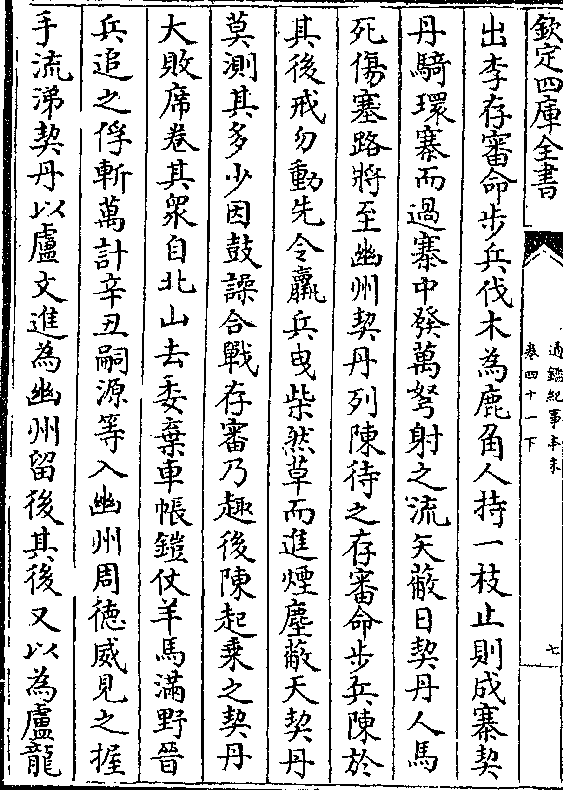 欽定四庫全書
通鑑紀事本末
卷四十一下
七
出李存審命步兵伐木為鹿角人持一枝止則成寨契
丹騎環寨而過寨中發萬弩射之流矢蔽日契丹人馬
死傷塞路將至幽州契丹列陳待之存審命步兵陳於
其後戒勿動先令羸兵曳柴然草而進煙塵蔽天契丹
莫測其多少因鼓譟合戰存審乃趣後陳起乗之契丹
大敗席卷其衆自北山去委棄車帳鎧仗羊馬滿野晉
兵追之俘斬萬計辛丑嗣源等入幽州周德威見之握
手流涕契丹以盧文進為幽州留後其後又以為盧龍